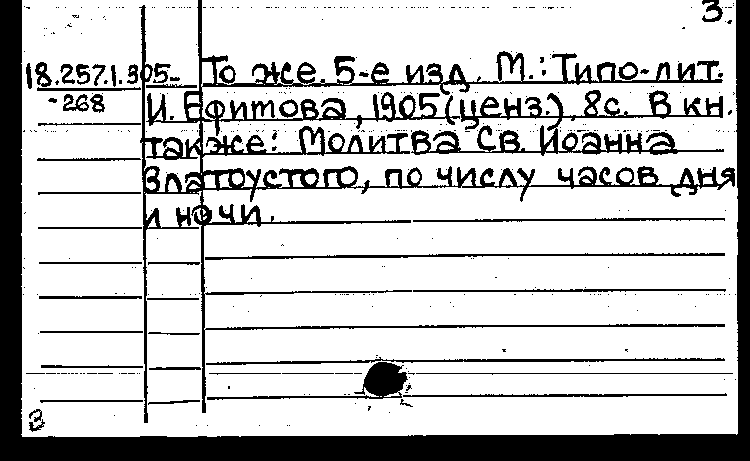 3.
18.257.1.305- То же. 5-е изд. М.: Типо-лит.
-268 И. Ефимова, 1905 (ценз.). 8с. В кн.
также: Молитва Св. Иоанна
Златоустого, по числу часов дня
и ночи.
В